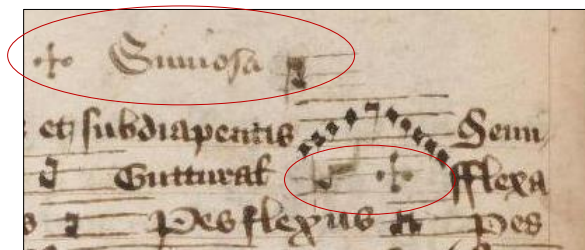 Sinuosa
et subdiapentis Semi
Guttural fflexa
s Pes flexus Pes